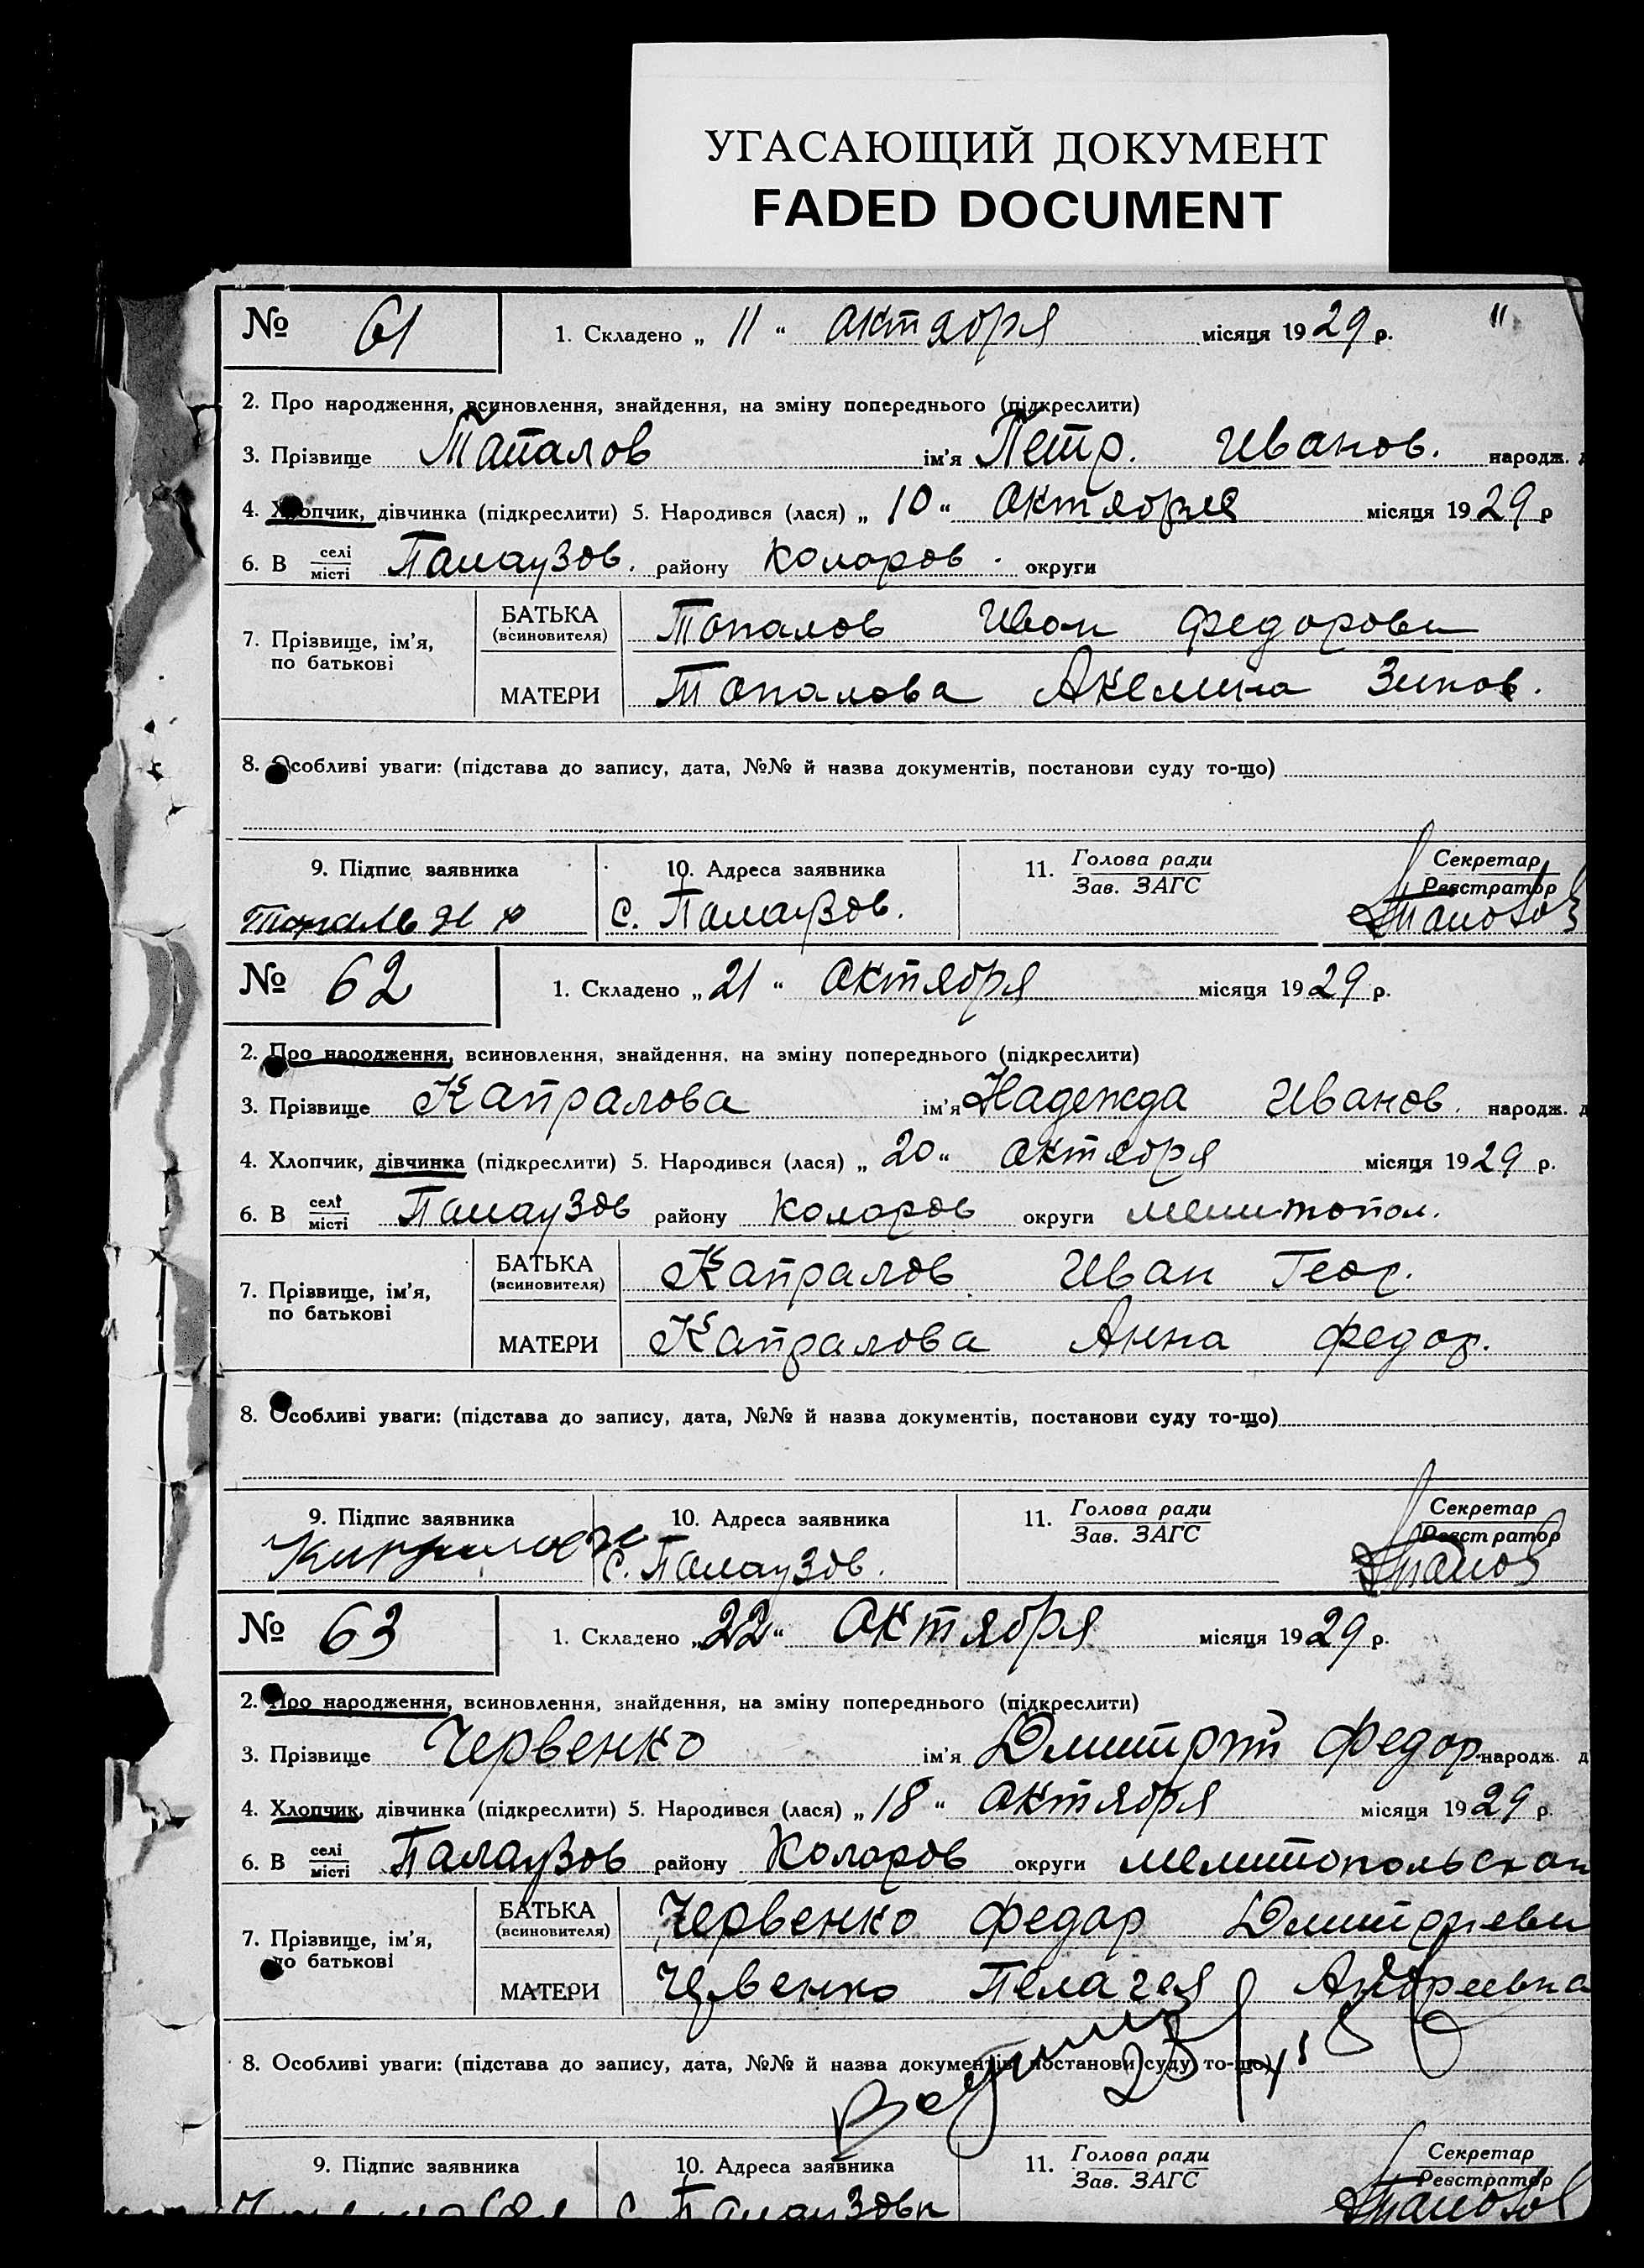 УГАСАЮЩИЙ ДОКУМЕНТ
FADED DOCUMENT
№ 61 1. Складено „ 11 “ октября місяця 1929 р. 11
2. Про народження, всиновлення, знайдення, на зміну попереднього (підкреслити)
3. Прізвище Тапалов ім'я Петр. Иванов. народж. д
4. Хлопчик, дівчинка (підкреслити) 5. Народився (лася) „ 10 “ октября місяця 1929 р
6. В селі/місті Палаузов. району Коларов. округи
7. Прізвище, ім'я, по батькові
БАТЬКА (всиновителя) Топалов Иван Федорови
МАТЕРИ Топалова Акелина Зинов.
8. Особливі уваги: (підстава до запису, дата, №№ й назва документів, постанови суду то-що)
9. Підпис заявника 10. Адреса заявника 11. Голова ради/Зав. ЗАГС Секретар/Реєстратор
с. Палаузов.
№ 62 1. Складено „ 21 “ октября місяця 1929 р.
2. Про народження, всиновлення, знайдення, на зміну попереднього (підкреслити)
3. Прізвище Капралова ім'я Надежда Иванов. народж. д
4. Хлопчик, дівчинка (підкреслити) 5. Народився (лася) „ 20 “ октября місяця 1929 р.
6. В селі/місті Палаузов району Коларов округи Мелитопол.
7. Прізвище, ім'я, по батькові
БАТЬКА (всиновителя) Капралов Иван Геор.
МАТЕРИ Капралова Анна Федор.
8. Особливі уваги: (підстава до запису, дата, №№ й назва документів, постанови суду то-що)
9. Підпис заявника 10. Адреса заявника 11. Голова ради/Зав. ЗАГС Секретар/Реєстратор
с. Палаузов.
№ 63 1. Складено „ 22 “ октября місяця 1929 р.
2. Про народження, всиновлення, знайдення, на зміну попереднього (підкреслити)
3. Прізвище Червенко ім'я Дмитрий Федор. народж. д
4. Хлопчик, дівчинка (підкреслити) 5. Народився (лася) „ 18 “ октября місяця 1929 р.
6. В селі/місті Палаузов району Коларов округи Мелитопольской
7. Прізвище, ім'я, по батькові
БАТЬКА (всиновителя) Червенко Федор Дмитриеви
МАТЕРИ Червенко Пелагея Андреевна
8. Особливі уваги: (підстава до запису, дата, №№ й назва документів, постанови суду то-що)
9. Підпис заявника 10. Адреса заявника 11. Голова ради/Зав. ЗАГС Секретар/Реєстратор
с. Палаузовк